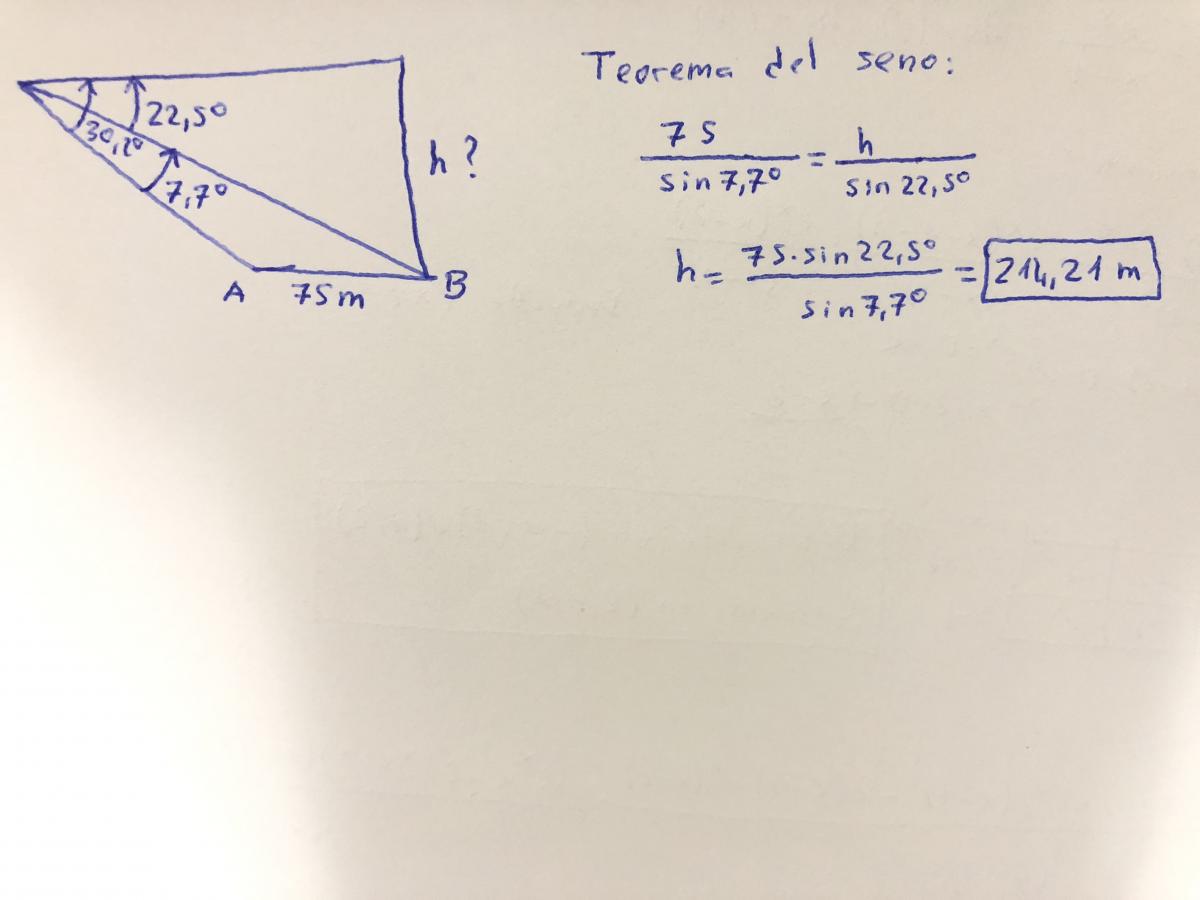 22,5º
30,2º
7,7º
h?
A 75m B
Teorema del seno:
75/sin7,7º = h/sin22,5º
h = 75·sin22,5º/sin7,7º = 214,21 m